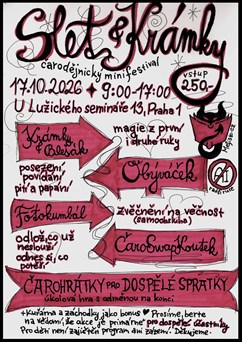 Slet & Krámky
čarodějnický minifestival
17.10.2026 ✦ 9:00-17:00
vstup
250,-
U Lužického semináře 13, Praha 1
Krámky & Blešák
magie z první
i druhé ruky
posezení,
povídání
pití a papání
Obýváček
Fotokumbál
zvěčnění na věčnost
(samoobsluha)
odlož, co už
neslouží
odnes si, co
potěší
ČaroSwapKoutek
ČAROHRÁTKY PRO DOSPĚLÉ SPRATKY
úkolová hra s odměnou na konci
+ Kuřárna a záchodky jako bonus ♥ Prosíme, berte
na vědomí, že akce je primárně pro dospělé účastníky.
Pro děti není zajištěn program ani zázemí. Děkujeme.